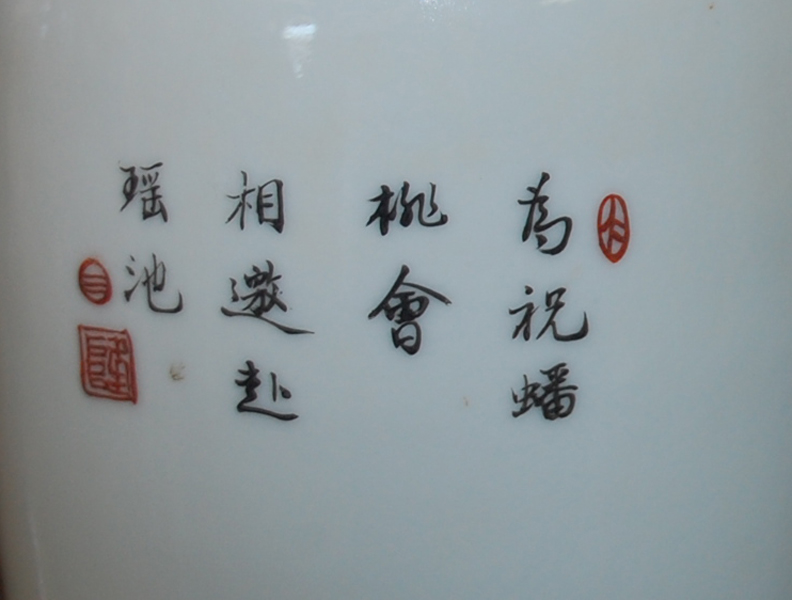 為祝蟠
桃會
相邀赴
瑶池